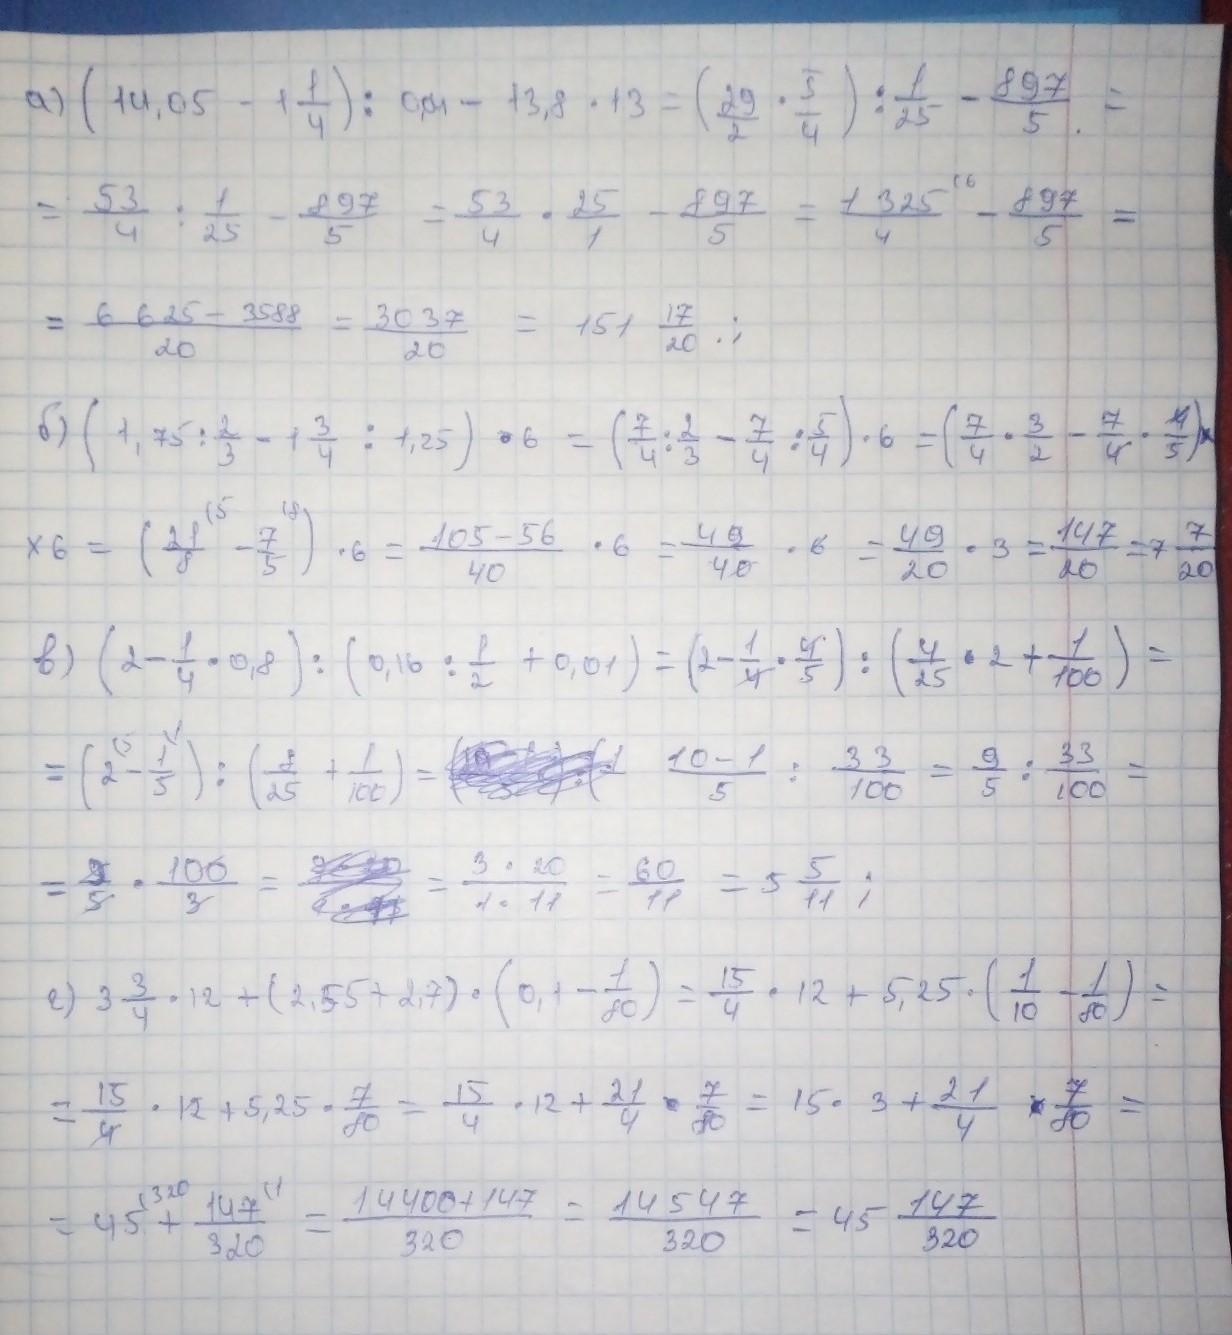 а) (14,05 - 1 1/4) : 0,04 - 13,8 · 13 = (29/2 · 5/4) : 1/25 - 897/5 =
= 53/4 : 1/25 - 897/5 = 53/4 · 25/1 - 897/5 = 1325/4 - 897/5 =
= (6625 - 3588)/20 = 3037/20 = 151 17/20.;
б) (1,75 : 2/3 - 1 3/4 : 1,25) · 6 = (7/4 : 2/3 - 7/4 : 5/4) · 6 = (7/4 · 3/2 - 7/4 · 4/5) ×
×6 = (21/8 (5 - 7/5 (8) · 6 = (105-56)/40 · 6 = 49/40 · 6 = 49/20 · 3 = 147/20 = 7 7/20
в) (2 - 1/4 · 0,8) : (0,16 : 1/2 + 0,01) = (2 - 1/4 · 4/5) : (4/25 · 2 + 1/100) =
= (2 (5 - 1/5 (1) : (8/25 + 1/100) = (10-1)/5 : 33/100 = 9/5 : 33/100 =
= 9/5 · 100/3 = (3 · 20)/(1 · 11) = 60/11 = 5 5/11 ;
г) 3 3/4 · 12 + (2,55 + 2,7) · (0,1 - 1/80) = 15/4 · 12 + 5,25 · (1/10 - 1/80) =
= 15/4 · 12 + 5,25 · 7/80 = 15/4 · 12 + 21/4 · 7/80 = 15 · 3 + 21/4 · 7/80 =
= 45 (320 + 147/320 (1 = (14400+147)/320 = 14547/320 = 45 147/320